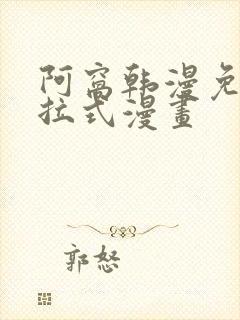 阿窩韩漫免
拉式漫畫
郭怒